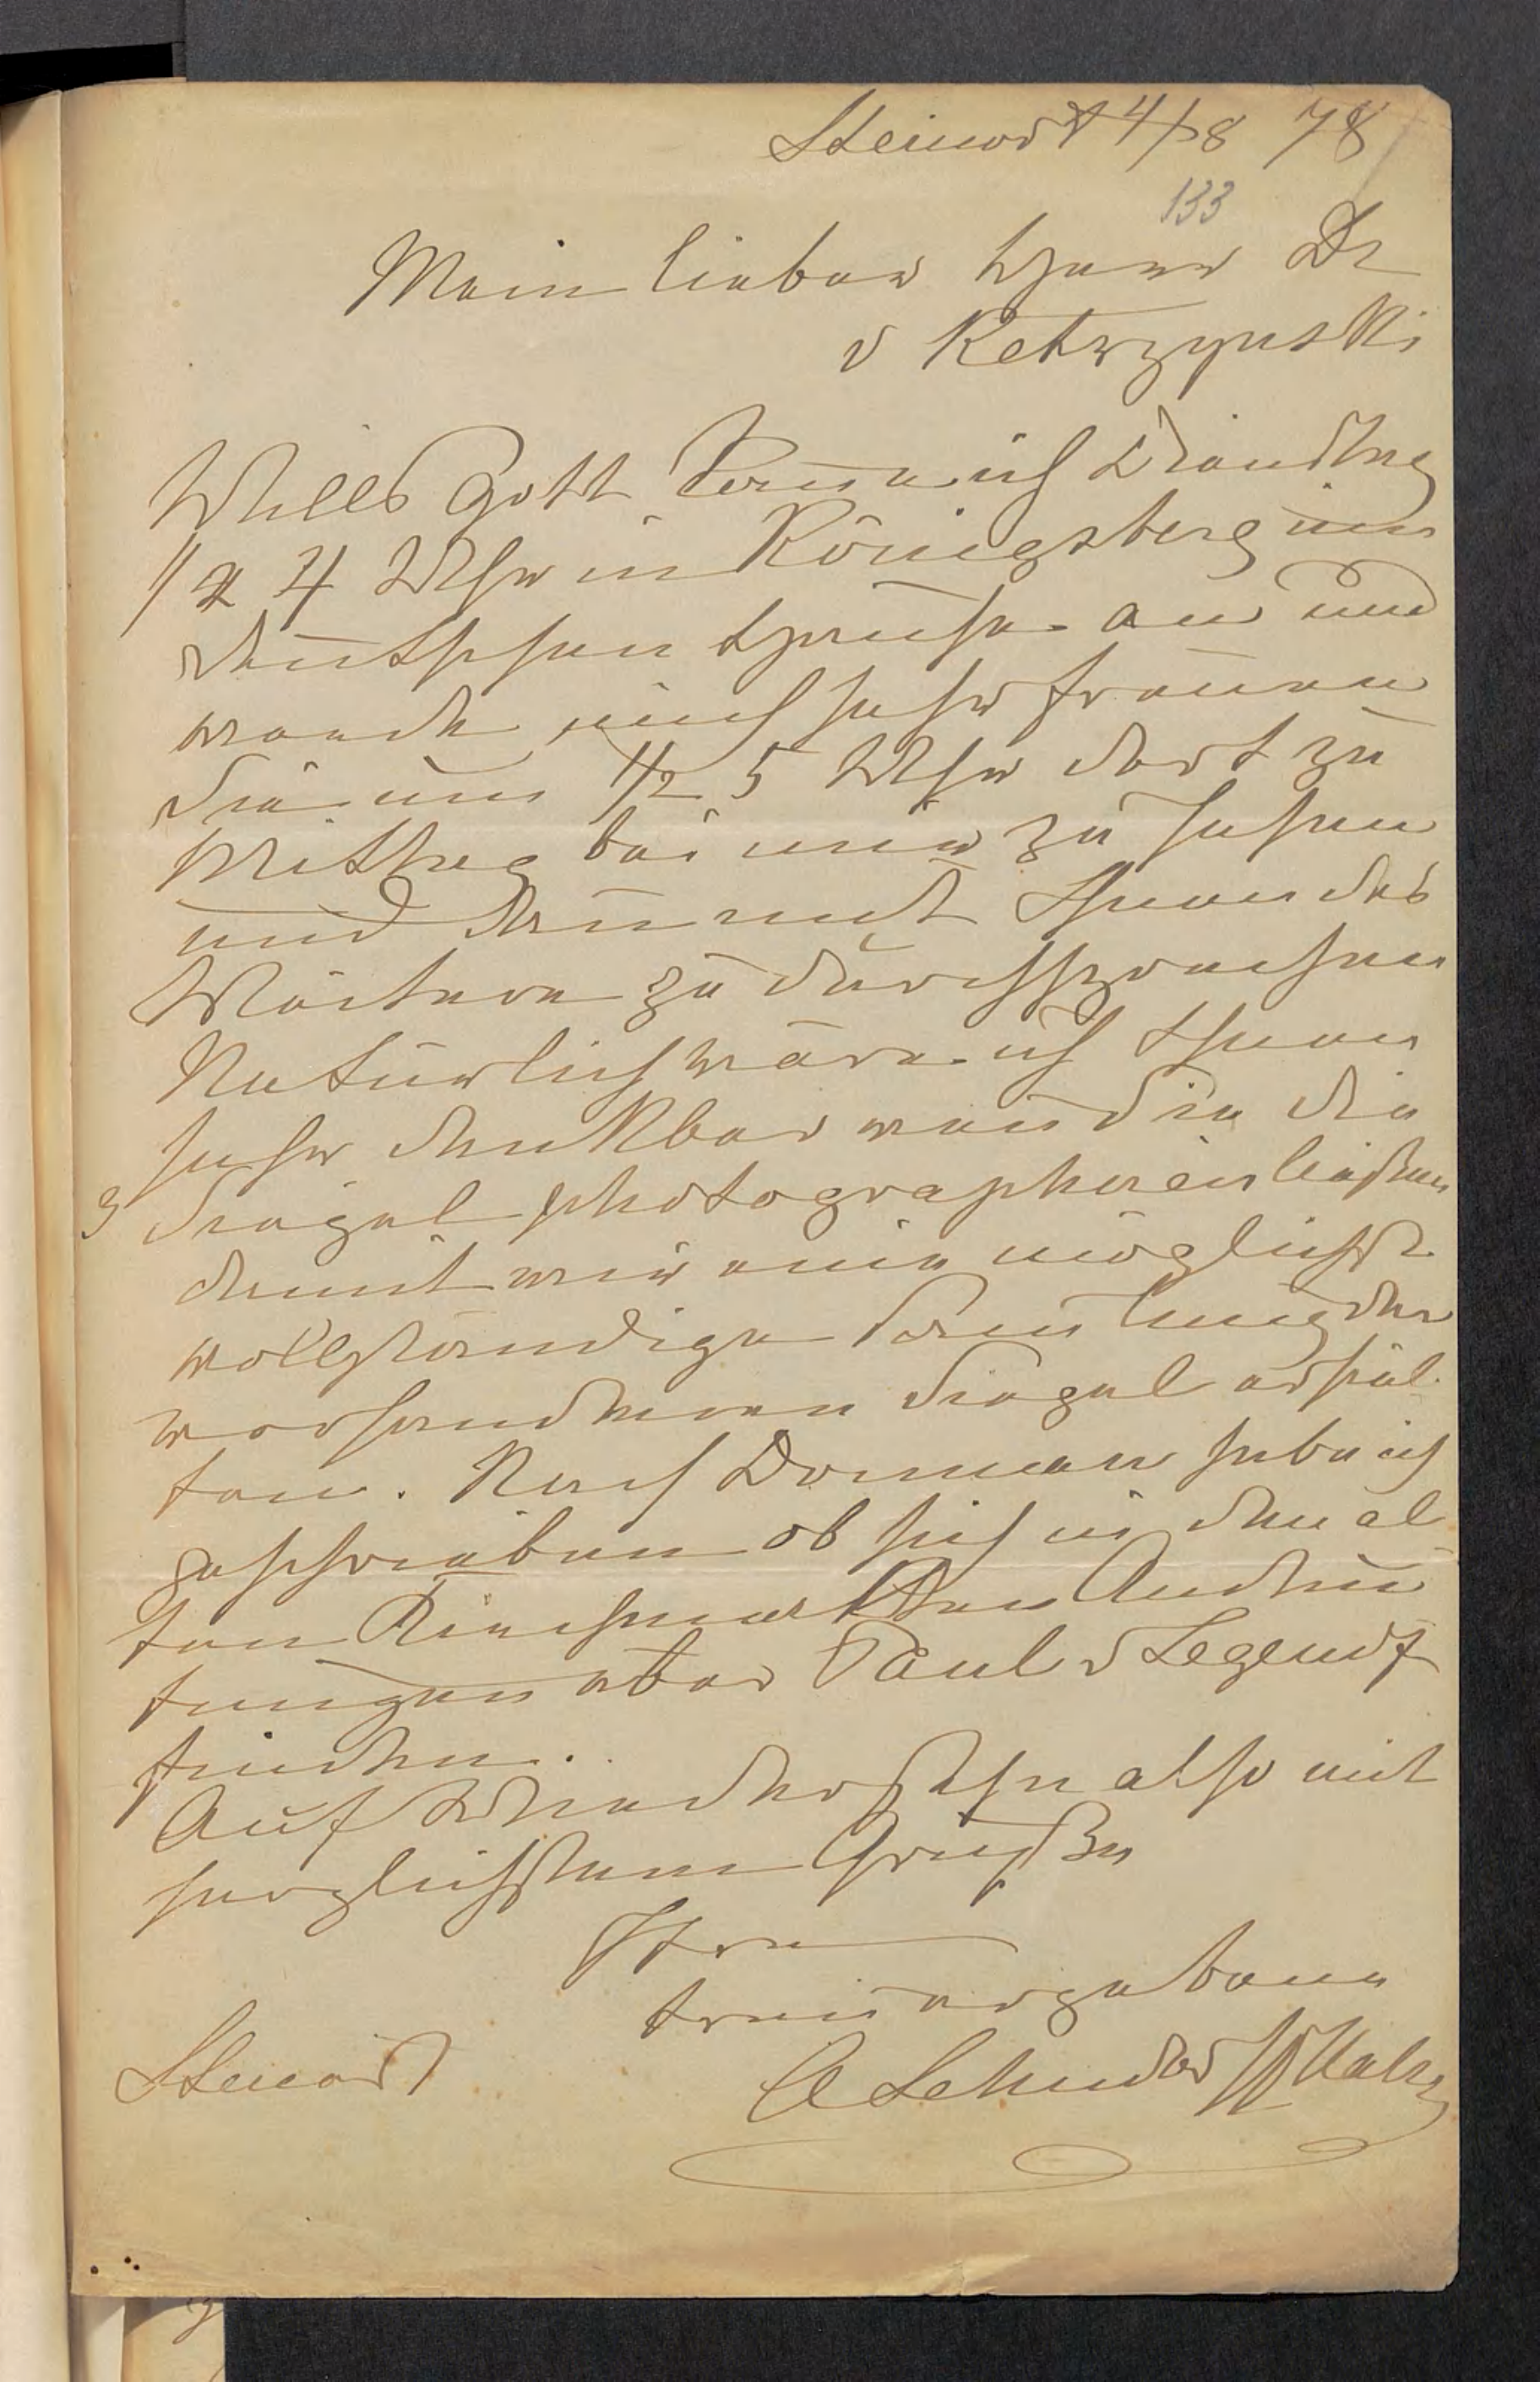 Steinort 4/8 78
133
Mein lieber Herr Dr
v Ketrzynski
Wills Gott komme ich Dienstag
1/2 4 Uhr in Königsberg im
deutschen Hause an und
werde mich sehr freuen
Sie um 1/2 5 Uhr dort zu
Mittag bei mir zu sehen
und dann mit Ihnen das
Weitere zu durchsprechen
Natürlich wäre ich Ihnen
sehr dankbar wenn Sie die
3 Siegel photographieren ließen
damit wir eine möglichst
vollständige Samlung der
vorhandenen Siegel erhiel
ten. Nach Domnau habe ich
geschrieben ob sich in den al
ten Andeu
tungen über Paul v Legendf
finden.
Auf Wiedersehn also mit
herzlichstem Gruße
Ihr
treu ergebener
Lehndorff
Steinort